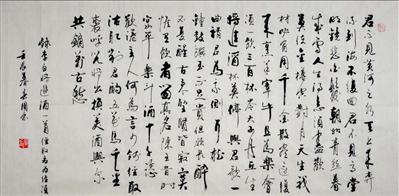 君不見黄河之水天上来奔
流到海不復回君不見高堂
明鏡悲白髮朝如青絲暮
成雪人生得意須盡歡
莫使金樽空對月天生我
材必有用千金散盡還復
来烹羊宰牛且為樂會
須一飲三百杯岑夫子丹丘生
將進酒杯莫停與君歌一
曲請君為我側耳聽
鐘鼓饌玉不足貴但願長醉
不願醒古来聖賢皆寂寞
惟有飲者留其名陳王昔時
宴平樂斗酒十千恣
歡謔主人何為言少錢徑須
沽取對君酌五花馬千金
裘呼兒將出換美酒與爾
共銷萬古愁
李白將進酒一首
壬辰春